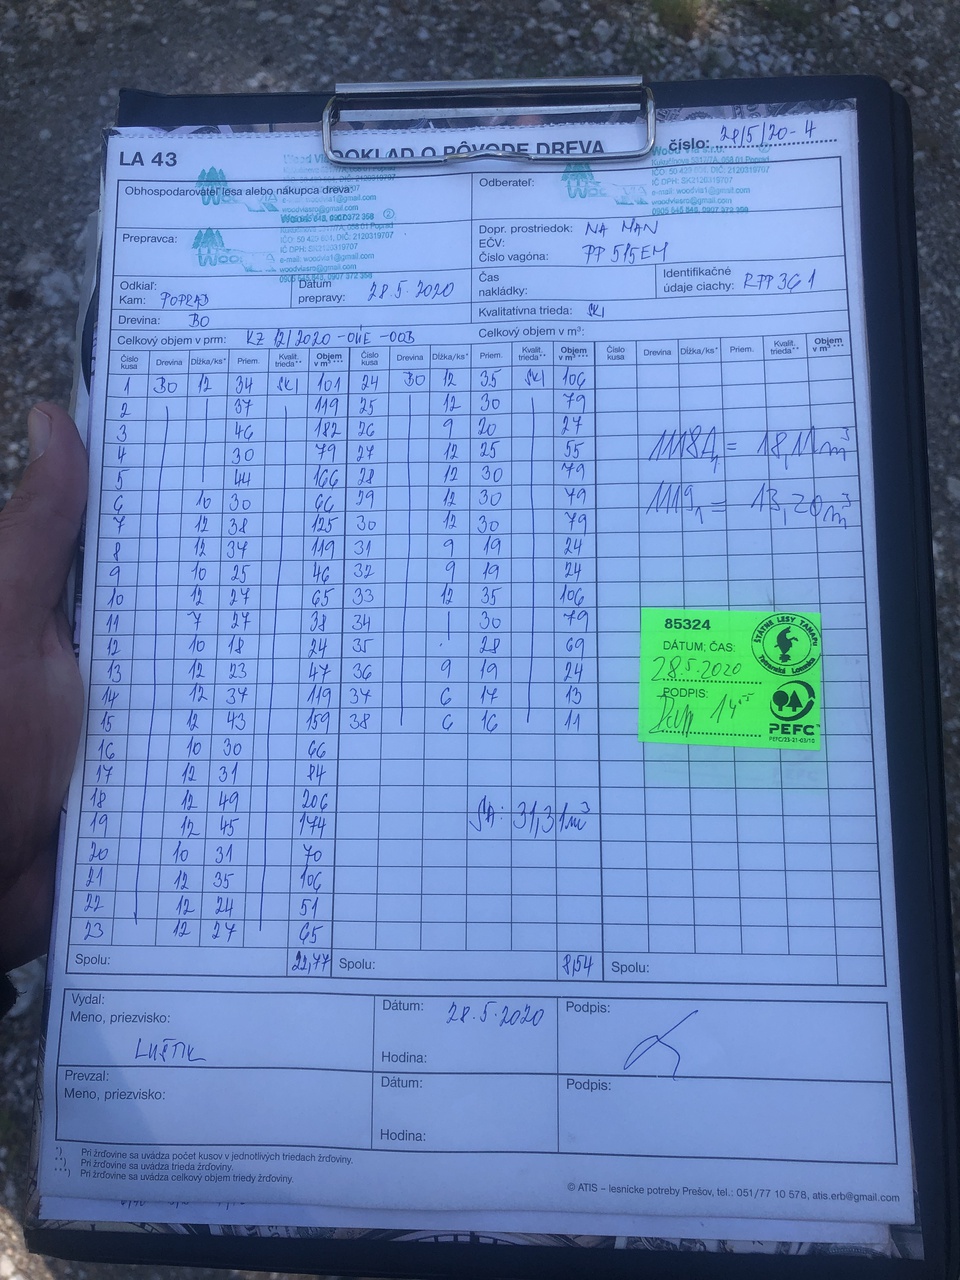 LA 43
DOKLAD O PÔVODE DREVA
číslo: 28/5/20-4
Obhospodarovateľ lesa alebo nákupca dreva:
Odberateľ:
Wood Via s.r.o.
Kukučínova 5017/7A, 058 01 Poprad
IČ DPH: SK2120319707
e-mail: woodvia1@gmail.com
woodviasro@gmail.com
0905 545 648, 0907 372 358
Prepravca:
Dopr. prostriedok: NA MAN
EČV:
Číslo vagóna: PP 515EM
Odkiaľ:
Kam: POPRAD
Dátum prepravy: 28.5.2020
Čas nakládky:
Identifikačné údaje ciachy: RPP361
Drevina: BO
Kvalitatívna trieda: SKI
Celkový objem v prm: KZ 12/2020-OÚE-003
Celkový objem v m³:
Číslo kusa Drevina Dĺžka/ks* Priem. Kvalit. trieda** Objem v m³*** Číslo kusa Drevina Dĺžka/ks* Priem. Kvalit. trieda** Objem v m³*** Číslo kusa Drevina Dĺžka/ks* Priem. Kvalit. trieda** Objem v m³***
1 BO 12 34 SKI 101 24 BO 12 35 SKI 106
2 37 119 25 12 30 79
3 46 182 26 9 20 27
4 30 79 27 12 25 55
5 44 166 28 12 30 79
6 10 30 66 29 12 30 79
7 12 38 125 30 12 30 79
8 12 37 119 31 9 19 24
9 10 25 46 32 9 19 24
10 12 27 65 33 12 35 106
11 7 27 38 34 30 79
12 10 18 24 35 28 69
13 12 23 47 36 9 19 24
14 12 37 119 37 6 17 13
15 12 43 159 38 6 16 11
16 10 30 66
17 12 31 84
18 12 49 206
19 12 45 174
20 10 31 70
21 12 35 106
22 12 24 51
23 12 27 65
= 18,11m³
= 13,20m³
31,31m³
85324
DÁTUM; ČAS:
28.5.2020
PODPIS:
ŠTÁTNE LESY TANAPu
Tatranská Lomnica
PEFC™
PEFC/23-21-03/10
Spolu: 22,77 Spolu: 8,54 Spolu:
Vydal:
Meno, priezvisko:
LUŠTIK
Dátum: 28.5.2020
Hodina:
Podpis:
Prevzal:
Meno, priezvisko:
Dátum:
Hodina:
Podpis:
*) Pri žrďovine sa uvádza počet kusov v jednotlivých triedach žrďoviny.
**) Pri žrďovine sa uvádza trieda žrďoviny.
***) Pri žrďovine sa uvádza celkový objem triedy žrďoviny.
© ATIS – lesnícke potreby Prešov, tel.: 051/77 10 578, atis.erb@gmail.com